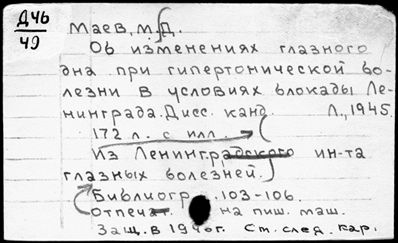 Д46
49
Маев, М.Д.
Об изменениях глазного
дна при гипертонической бо-
лезни в условиях блокады Ле-
нинграда. Дисс. канд. Л., 1945.
172 л. с илл.
Из Ленинградского ин-та
глазных болезней.
Библиогр. .103-106.
Отпеча. на пиш. маш.
Защ. в 1946г. Ст. след. кар.